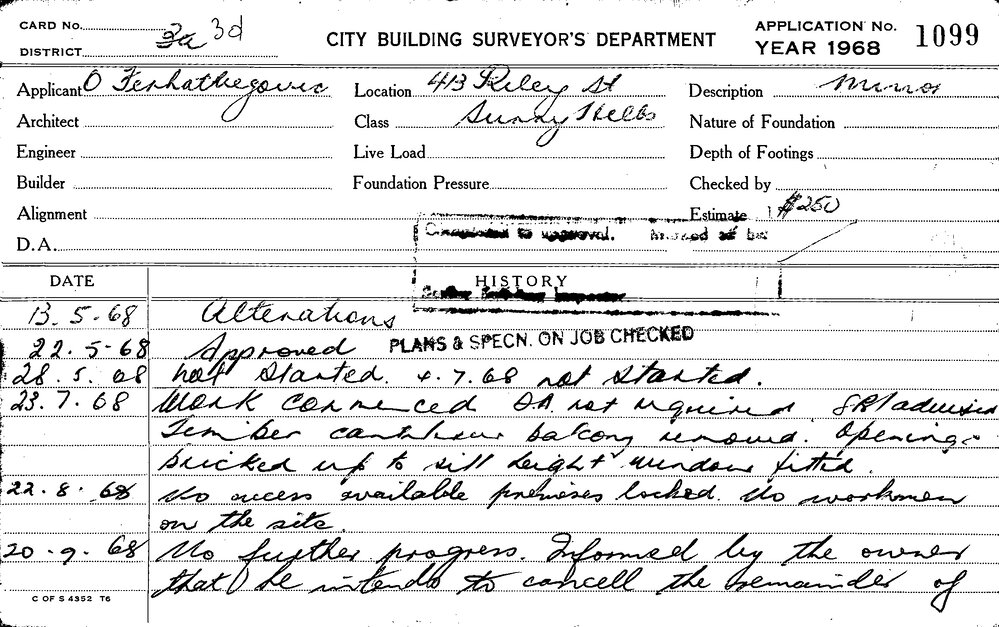 CARD No. 3a 3d
DISTRICT
CITY BUILDING SURVEYOR'S DEPARTMENT
APPLICATION No. 1099
YEAR 1968
Applicant O Ferhathegovic
Location 413 Riley St
Description Minor
Architect
Class Surry Hills
Nature of Foundation
Engineer
Live Load
Depth of Footings
Builder
Foundation Pressure
Checked by
Alignment
Estimate $250
D.A.
to approval.
DATE
HISTORY
Building Inspector
13.5.68 Alterations
PLANS & SPECN. ON JOB CHECKED
22.5-68 Approved
28.5.68 not started. 4.7.68 not started.
23.7.68 Work commenced D.A. not required
Timber cantilever balcony removed. Openings
bricked up to sill height windows fitted.
22.8.68 No access available premises locked. No workmen
on the site.
20-9-68 No further progress. Informed by the owner
that he intends to cancell the remainder of
C OF S 4352 T6